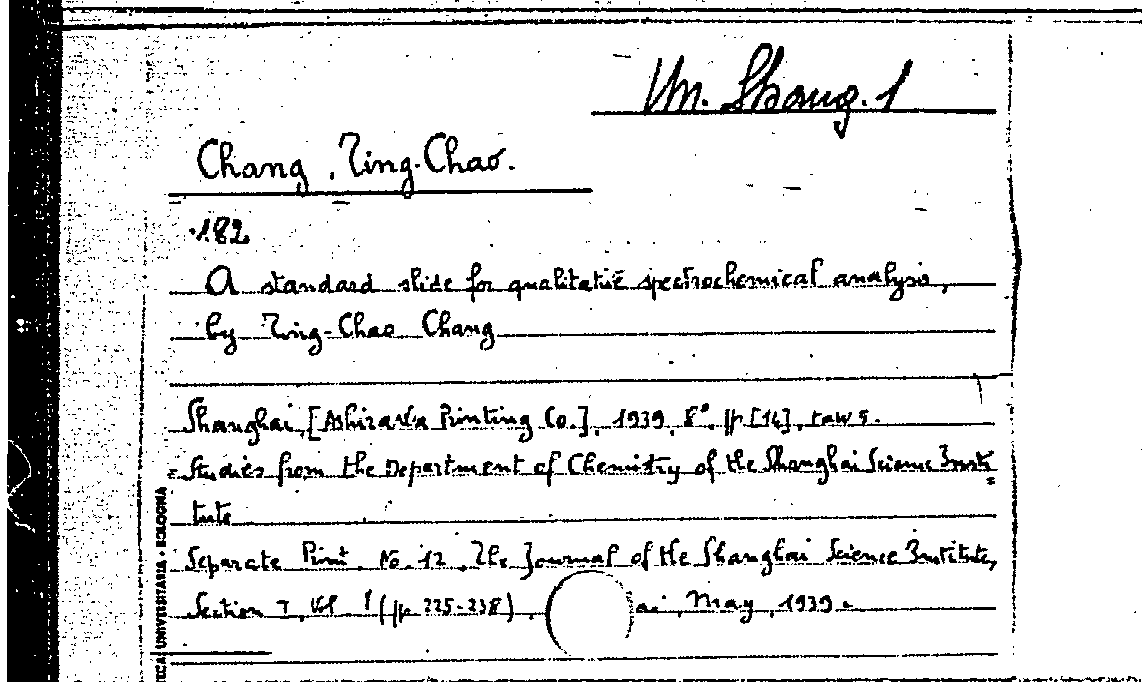 Un. Shang. 1
Chang, Ting-Chao.
182
A standard slide for qualitative spectrochemical analysis,
by Ting-Chao Chang
Shanghai, [Ashizawa Printing Co.], 1939, 8°, pp [14], tav 5.
= Studies from the Department of Chemistry of the Shanghai Science Insti=
tute
Separate Print. No. 12. The Journal of the Shanghai Science Institute,
Section I, Vol. (pp 225-238). ai, May, 1939.
TECA UNIVERSITARIA • BOLOGNA